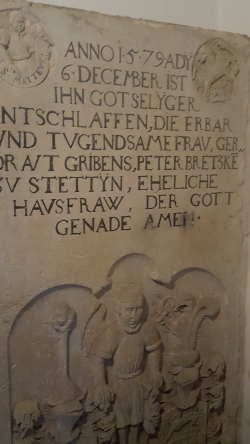 ANNO 1·5·79 ADY
6·DECEMBER IST
IHN GOT SELYGER
ENTSCHLAFFEN, DIE ERBAR
UND TVGENDSAME FRAV, GER
PETER BRETSKE
ZV STETTŸN, EHELICHE
HAVSFRAW, DER GOTT
GENADE AMEN·